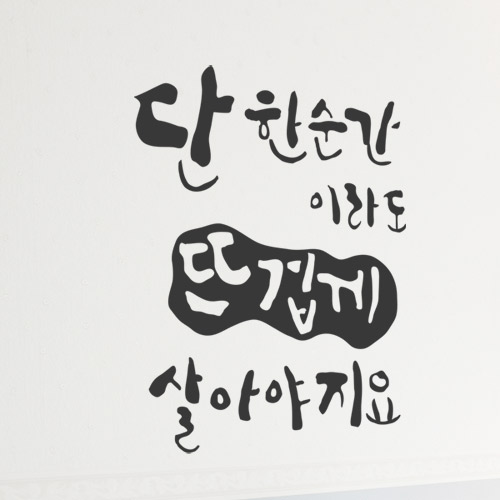 단 한순간
이라도
뜨겁게
살아야지요